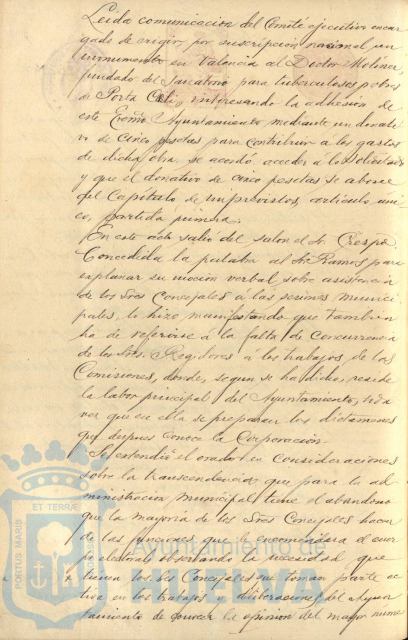 Leida comunicación del Comité ejecutivo encar
gado de erigir, por suscripción nacional un
monumento en Valencia al Doctor Moliner,
fundador del Sanatorio para tuberculosos pobres
de Porta Coeli, interesando la adhesión de
este Excmo Ayuntamiento mediante un donati
vo de cinco pesetas para contribuir á los gastos
de dicha obra, se acordó acceder á lo solicitado
y que el donativo de cinco pesetas se abone
del Capítulo de imprevistos, artículo uni
co, partida primera.
En este acto salió del salon el Sr. Crespo
Concedida la palabra al Sr. Ramos para
explanar su moción verbal sobre asistencia
de los Sres Concejales á las sesiones munici
pales, lo hizo manifestando que tambien
ha de referirse á la falta de concurrencia
de los Sres. Regidores á los trabajos de las
Comisiones, donde, segun se ha dicho, reside
la labor principal del Ayuntamiento, toda
vez que en ella se preparan los dictámenes
que despues conoce la Corporación.
Se extendió el orador en consideraciones
sobre la transcendencia que para la ad
ministracion municipal tiene el abandono
que la mayoria de los Sres Concejales hacen
de las funciones que le encomendara el cuer
po electoral observando la necesidad que
tienen los Sres Concejales que toman parte ac
tiva en los trabajos y deliberaciones del Ayun
tamiento de conocer la opinion del mayor nume
ET TERRÆ
PORTUS MARIS
Ayuntamiento de
HUELVA